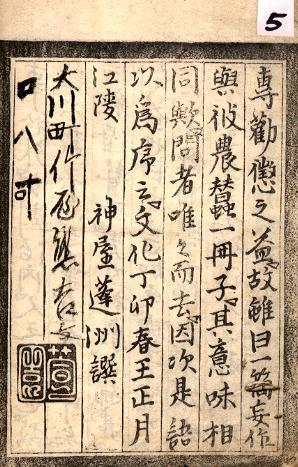 專勸懲之益故雖曰一篇妄作
與彼農蠶一冊子其意味相
同歟問者唯々而去因次是語
以爲序云文化丁卯春王正月
江陵
神屋蓬洲譔
大川町
口八叶
5